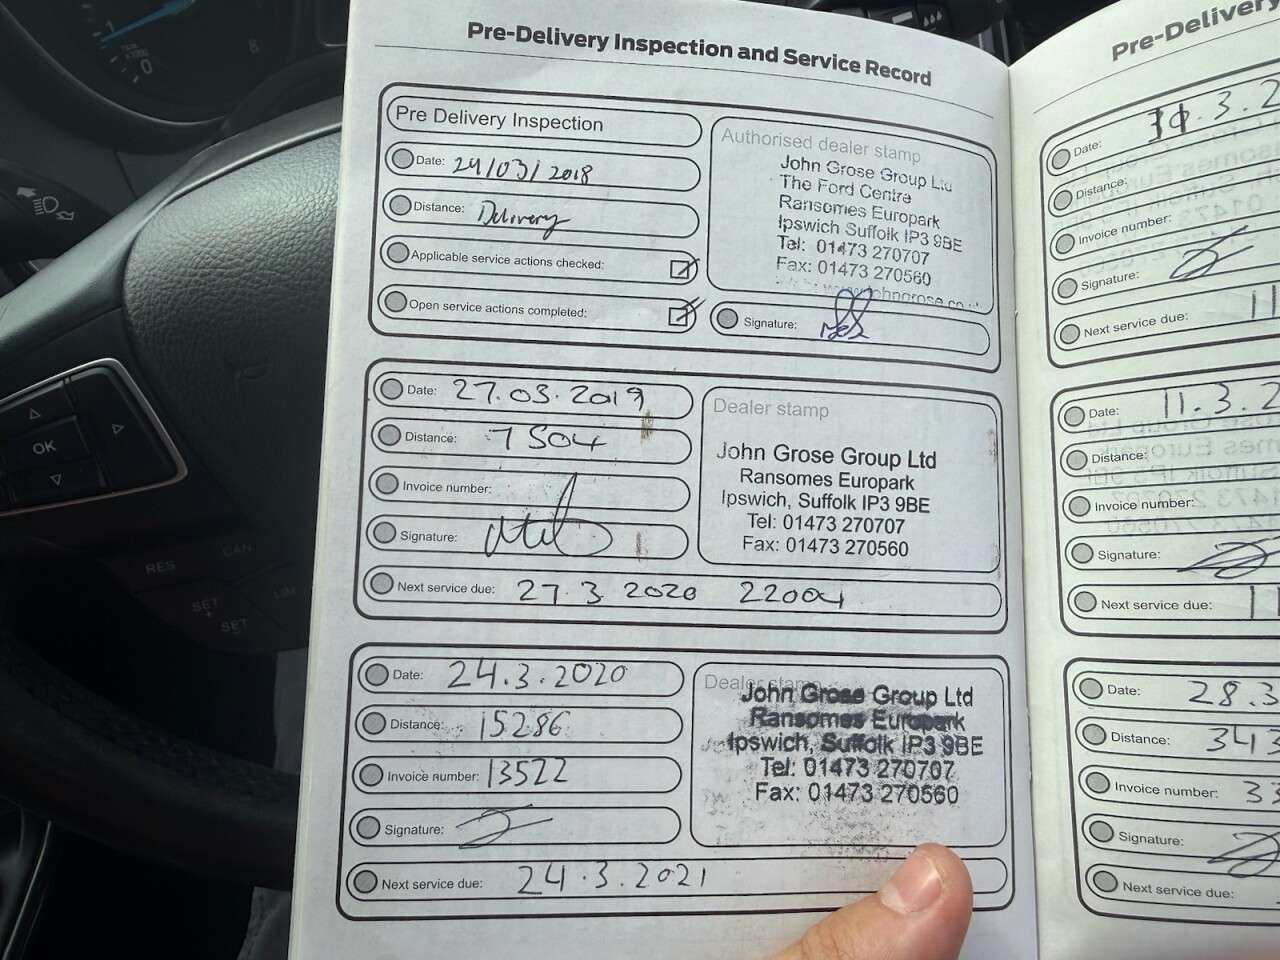 Pre-Delivery Inspection and Service Record
Pre Delivery Inspection
Date: 24/03/2018
Distance: Delivery
Applicable service actions checked:
Open service actions completed:
Authorised dealer stamp
John Grose Group Ltd
The Ford Centre
Ransomes Europark
Ipswich Suffolk IP3 9BE
Tel: 01473 270707
Fax: 01473 270560
Signature:
Date: 27.03.2019
Distance: 7504
Invoice number:
Signature:
Next service due: 27.3.2020 22004
Dealer stamp
John Grose Group Ltd
Ransomes Europark
Ipswich, Suffolk IP3 9BE
Tel: 01473 270707
Fax: 01473 270560
Date: 24.3.2020
Distance: 15286
Invoice number: 13522
Signature:
Next service due: 24.3.2021
Dealer stamp
John Grose Group Ltd
Ransomes Europark
Ipswich, Suffolk IP3 9BE
Tel: 01473 270707
Fax: 01473 270560
Pre-Delivery
Date:
Distance:
Invoice number:
Signature:
Next service due: 11
Date: 11.3.2
Distance:
Invoice number:
Signature:
Next service due: 11
Date: 28.3
Distance: 343
Invoice number: 33
Signature:
Next service due:
OK
RES
CAN
SET
+
SET
LIM
8
0